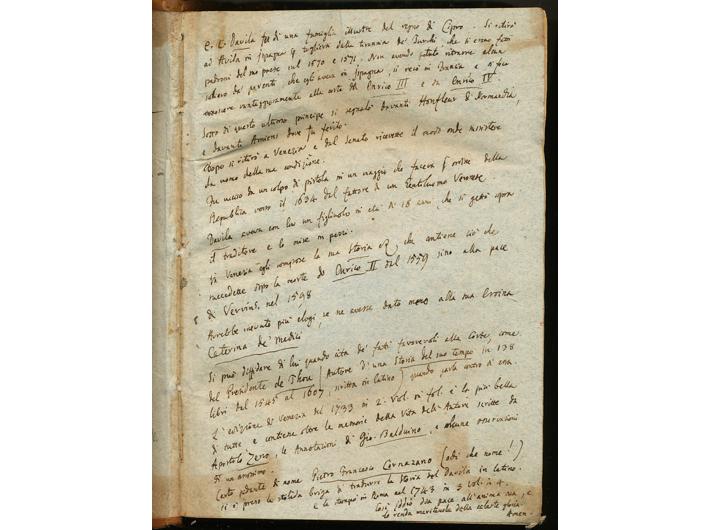 E. C. Davila fu di una famiglia illustre del regno di Cipro. Si ritirò
ad Avila in Ispagna p togliersi dalla tirannia de' Turchi che si erano fatti
padroni del suo paese nel 1570 e 1571. Non avendo potuto ritrovare alcun
de' parenti che egli aveva in Ispagna, si recò in Francia e si fece
conoscere vantaggiosamente alla corte di Enrico III e di Enrico IV
Sotto di questo ultimo principe si segnalò davanti Honfleur di Normandia,
e davanti Amiens dove fu ferito.
Dopo si ritirò a Venezia e dal Senato ricevette il modo onde sussistere
da uomo della sua condizione.
Fu ucciso da un colpo di pistola in un viaggio che faceva p ordine della
Republica verso il 1634 dal fattore di un Gentiluomo Veneto.
Davila aveva con lui un figliuolo in età di 18 anni, che si gettò sopra
il traditore e lo mise in pezzi.
In Venezia egli compose la sua Storia che contiene ciò che
succedette dopo la morte di Enrico II dal 1559 sino alla pace
di Vervins, nel 1598
Avrebbe meritato più elogi, se ne avesse dato meno alla sua Eroina
Caterina de' Medici
Si può diffidare di lui quando cita de' fatti favorevoli alla Corte, come
del Presidente de Thou (Autore d'una Storia del suo tempo in 138
libri dal 1545 al 1607, scritta in latino) quando parla contro di essa.
L'edizione di Venezia del 1733 in 2. Vol. in fol. è la più bella
di tutte e contiene oltre le memorie della Vita dell'Autore scritte da
Apostolo Zeno, le Annotazioni di Gio. Balduino, e alcune osservazioni
di un anonimo.
Certo pedante di nome Pietro Francesco Cornazano (ohi che nome!)
si è preso la stolida briga di tradurre la Storia del Davila in latino.
e la stampò in Roma nel 1743 in 3 vol. in 4.
Così Iddio dia pace all'anima sua, e
lo renda meritevole della celeste gloria.
Amen.